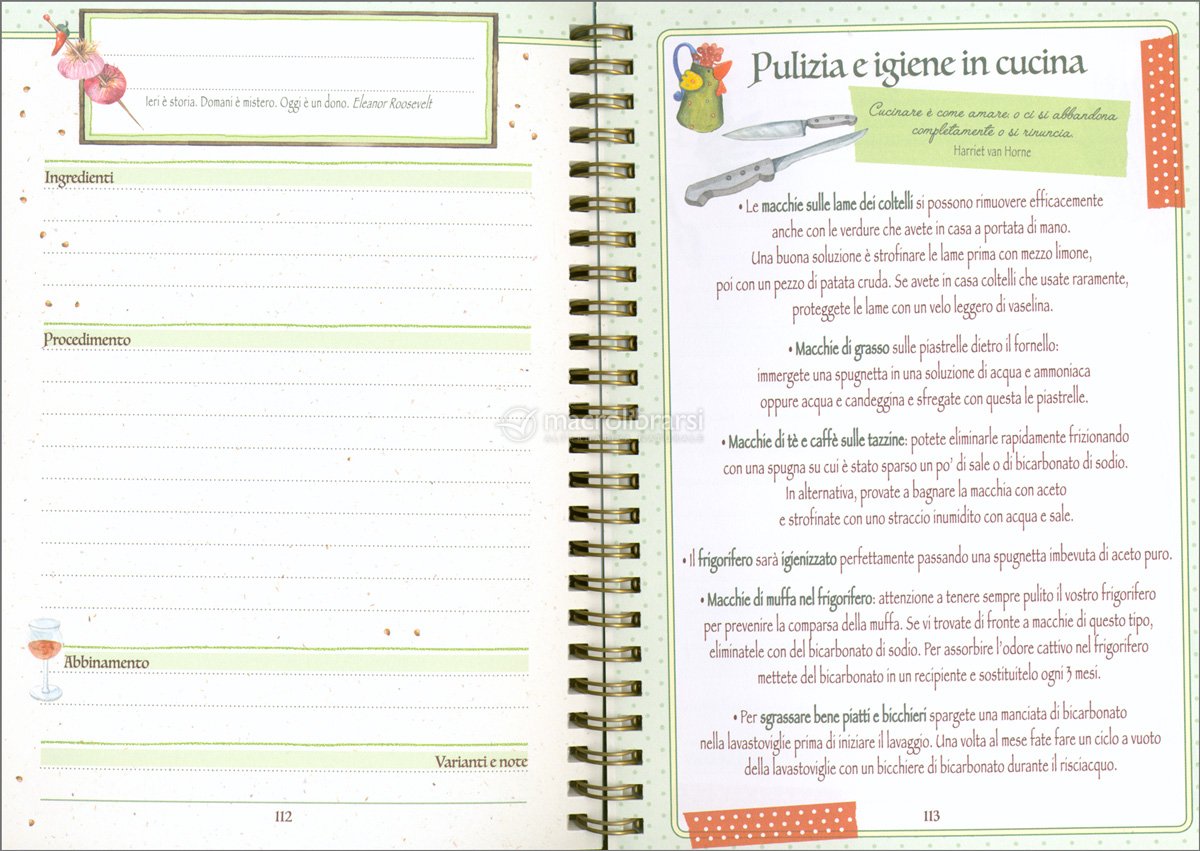 Ieri è storia. Domani è mistero. Oggi è un dono. Eleanor Roosevelt
Ingredienti
Procedimento
Abbinamento
Varianti e note
112
macrolibrarsi
Pulizia e igiene in cucina
Cucinare è come amare: o ci si abbandona
completamente o si rinuncia.
Harriet van Horne
• Le macchie sulle lame dei coltelli si possono rimuovere efficacemente
anche con le verdure che avete in casa a portata di mano.
Una buona soluzione è strofinare le lame prima con mezzo limone,
poi con un pezzo di patata cruda. Se avete in casa coltelli che usate raramente,
proteggete le lame con un velo leggero di vaselina.
• Macchie di grasso sulle piastrelle dietro il fornello:
immergete una spugnetta in una soluzione di acqua e ammoniaca
oppure acqua e candeggina e sfregate con questa le piastrelle.
• Macchie di tè e caffè sulle tazzine: potete eliminarle rapidamente frizionando
con una spugna su cui è stato sparso un po' di sale o di bicarbonato di sodio.
In alternativa, provate a bagnare la macchia con aceto
e strofinate con uno straccio inumidito con acqua e sale.
• Il frigorifero sarà igienizzato perfettamente passando una spugnetta imbevuta di aceto puro.
• Macchie di muffa nel frigorifero: attenzione a tenere sempre pulito il vostro frigorifero
per prevenire la comparsa della muffa. Se vi trovate di fronte a macchie di questo tipo,
eliminatele con del bicarbonato di sodio. Per assorbire l'odore cattivo nel frigorifero
mettete del bicarbonato in un recipiente e sostituitelo ogni 3 mesi.
• Per sgrassare bene piatti e bicchieri spargete una manciata di bicarbonato
nella lavastoviglie prima di iniziare il lavaggio. Una volta al mese fate fare un ciclo a vuoto
della lavastoviglie con un bicchiere di bicarbonato durante il risciacquo.
113